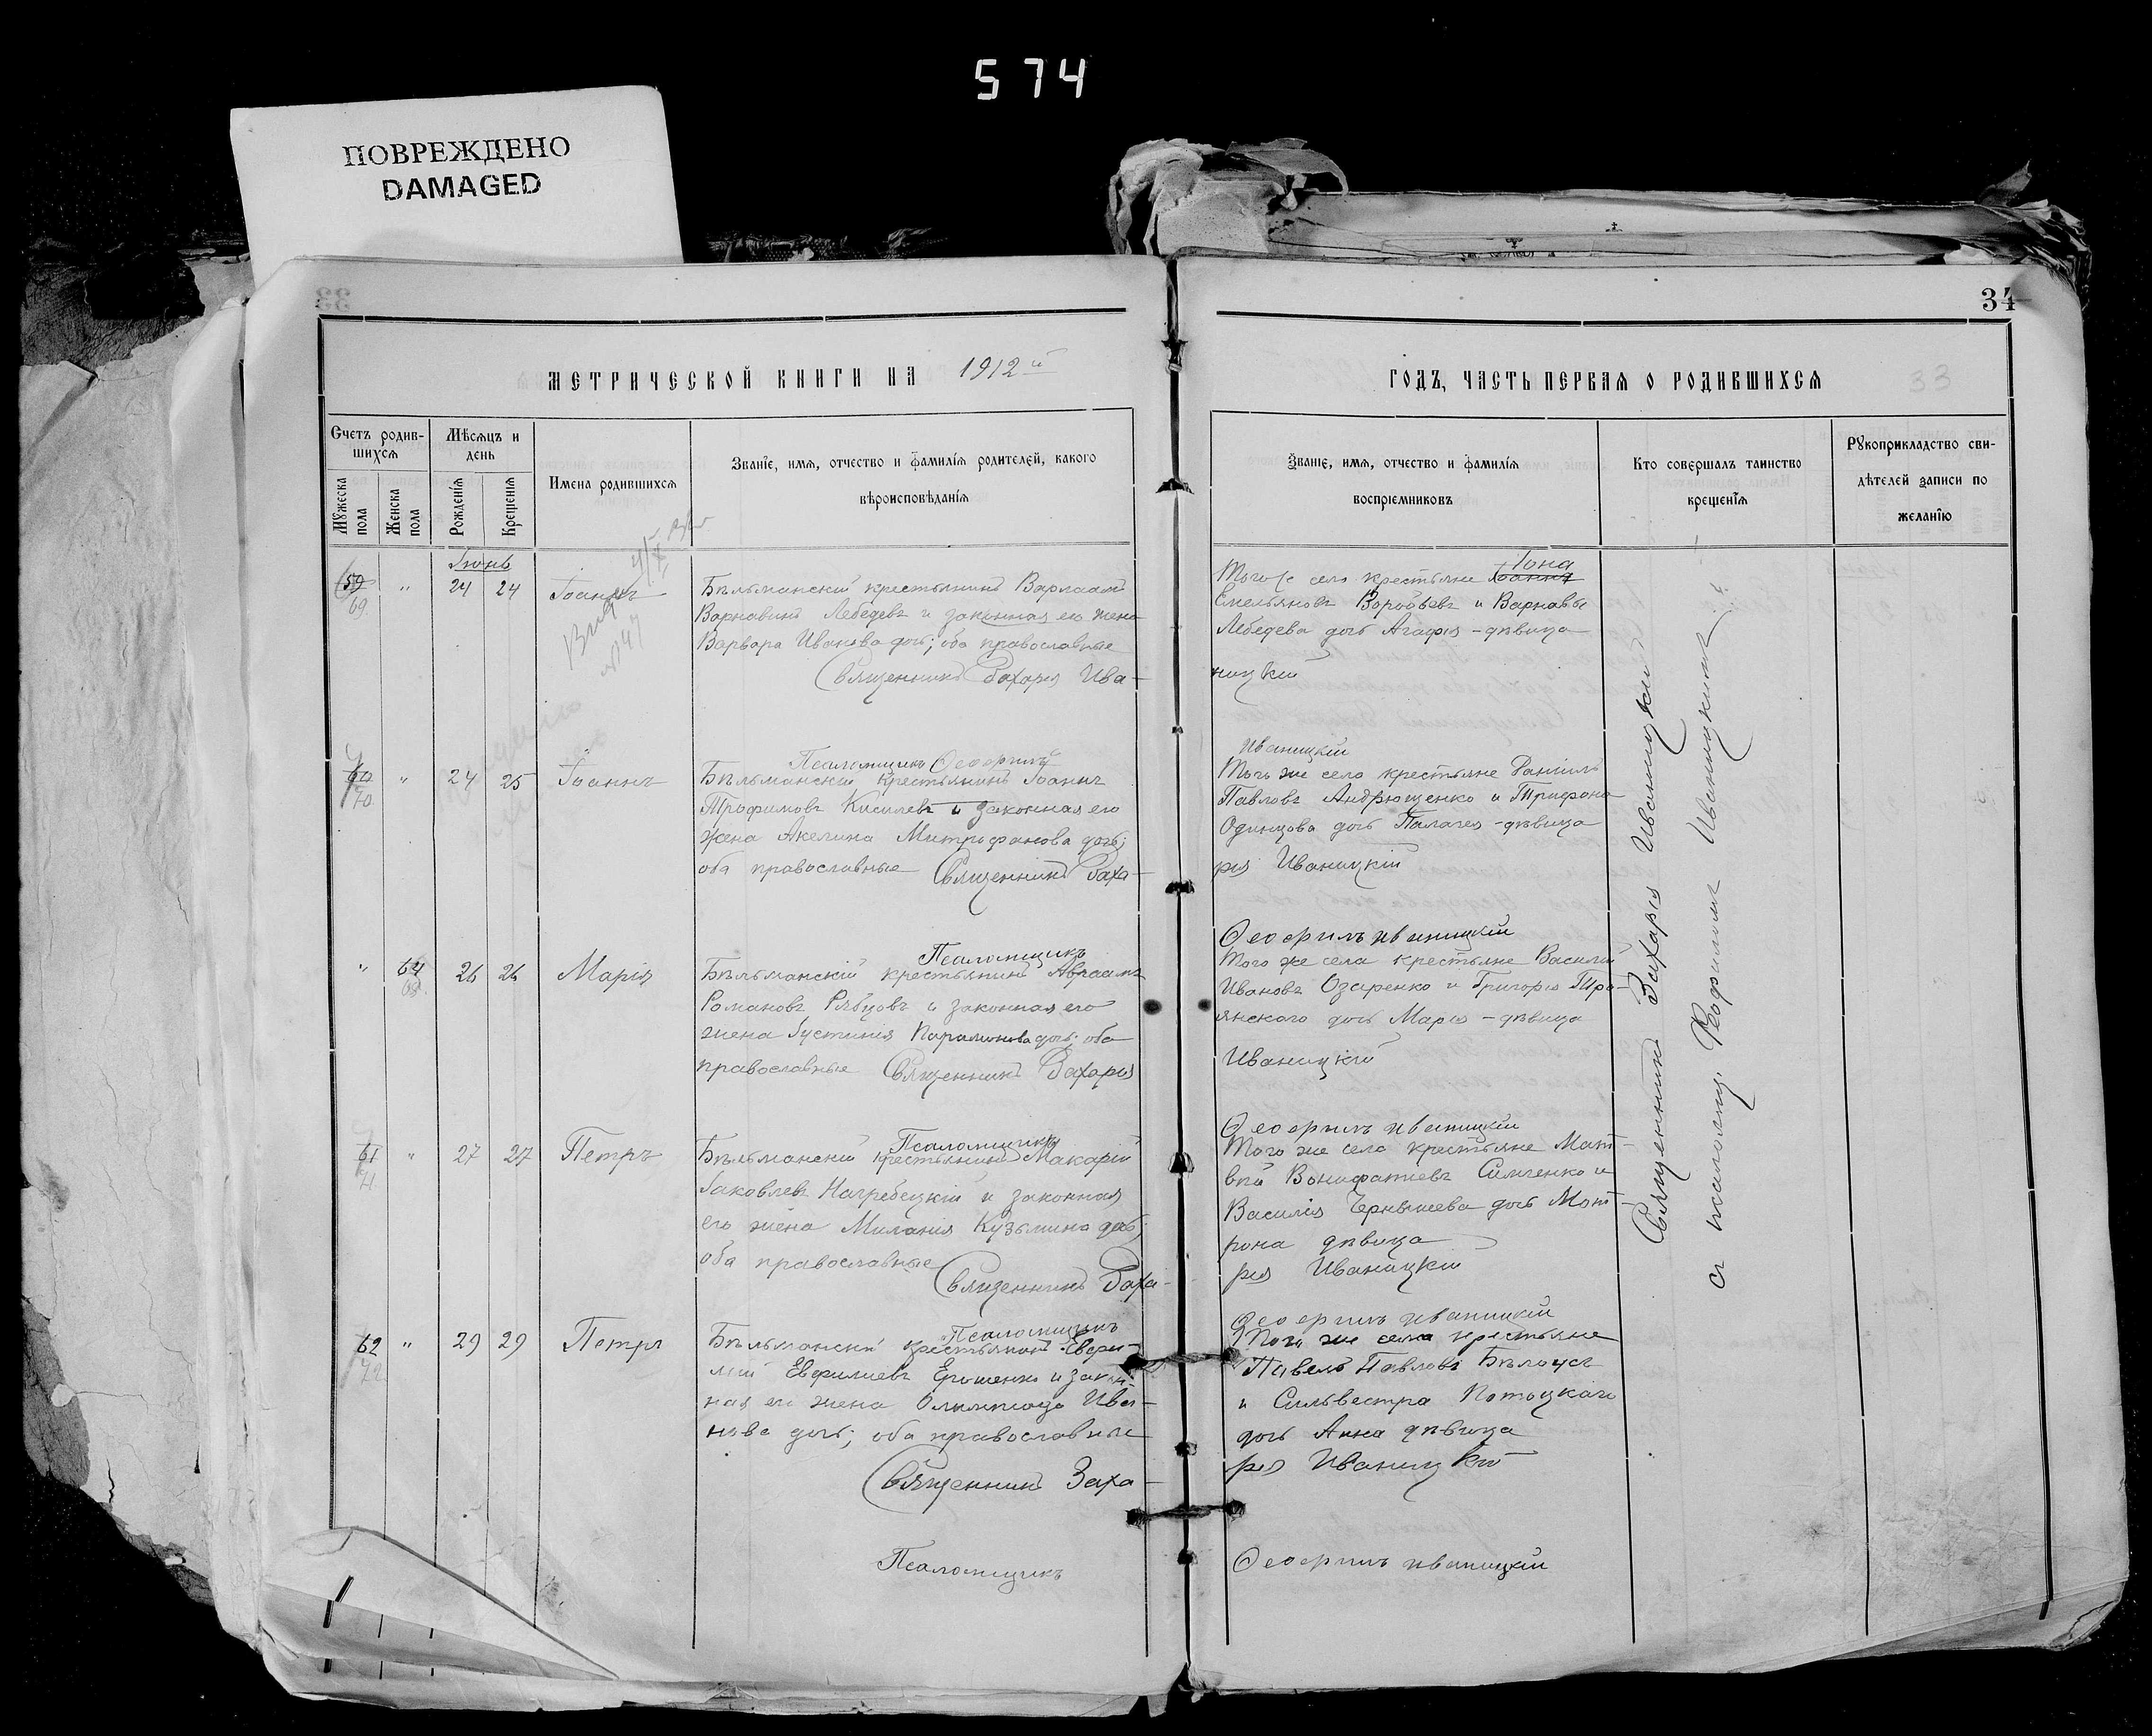 574
ПОВРЕЖДЕНО
DAMAGED
34
МЕТРИЧЕСКОЙ КНИГИ НА 1912 й
ГОДЪ, ЧАСТЬ ПЕРВАЯ О РОДИВШИХСЯ
33
Счетъ родив-
шихся
Мужеска пола
Женска пола
Мѣсяцъ и
день
Рожденія
Крещенія
Имена родившихся
Званіе, имя, отчество и фамилія родителей, какого
вѣроисповѣданія
Званіе, имя, отчество и фамилія
воспріемниковъ
Кто совершалъ таинство
крещенія
Рукоприкладство сви-
дѣтелей записи по
желанію
Іюнь
59 " 24 24 Іоаннъ
69
Бѣльманскій крестьянинъ Варлаамъ
Варнавинъ Лебедевъ и законная его жена
Варвара Иванова дочь; оба православные
Священникъ Захарія Ива-
Того же села крестьяне Іоаннъ Іона
Емельяновъ Воробьевъ и Варнавы
Лебедева дочь Агафія - дѣвица
ницкій
Псаломщикъ Ѳеофилъ
Иваницкій
60 " 24 25 Іоаннъ
70
Бѣльманскій крестьянинъ Іоаннъ
Трофимовъ Киселевъ и законная его
жена Акелина Митрофанова дочь;
оба православные Священникъ Заха-
Того же села крестьяне Даніилъ
Павловъ Андрющенко и Трифона
Одинцова дочь Палагея - дѣвица
рія Иваницкій
Псаломщикъ
Ѳеофилъ Иваницкій
" 64 26 26 Марія
Бѣльманскій крестьянинъ Авраамъ
Романовъ Рябцовъ и законная его
жена Іустинія Парамонова дочь; оба
православные Священникъ Захарія
Того же села крестьяне Василій
Ивановъ Озаренко и Григорія Тро-
янского дочь Марія - дѣвица
Иваницкій
Псаломщикъ
Ѳеофилъ Иваницкій
61 " 27 27 Петръ
71
Бѣльманскій крестьянинъ Макарій
Іаковлевъ Нагребецкій и законная
его жена Миланія Кузьмина дочь;
оба православные
Священникъ Заха-
Того же села крестьяне Мат-
вѣй Вонифатіевъ Симченко и
Василія Чернышева дочь Мат-
рона дѣвица
рія Иваницкій
Псаломщикъ
Ѳеофилъ Иваницкій
62 " 29 29 Петръ
72
Бѣльманскій крестьянинъ Евфи-
мій Евфиміевъ Ерошенко и закон-
ная его жена Олимпіада Ива-
нова дочь; оба православные
Священникъ Заха-
Того же села крестьяне
Павелъ Павловъ Бѣлоусъ
и Сильвестра Потоцкаго
дочь Анна дѣвица
рія Иваницкій
Псаломщикъ
Ѳеофилъ Иваницкій
Священникъ Захарія Иваницкій
съ псаломщ. Ѳеофиломъ Иваницкимъ